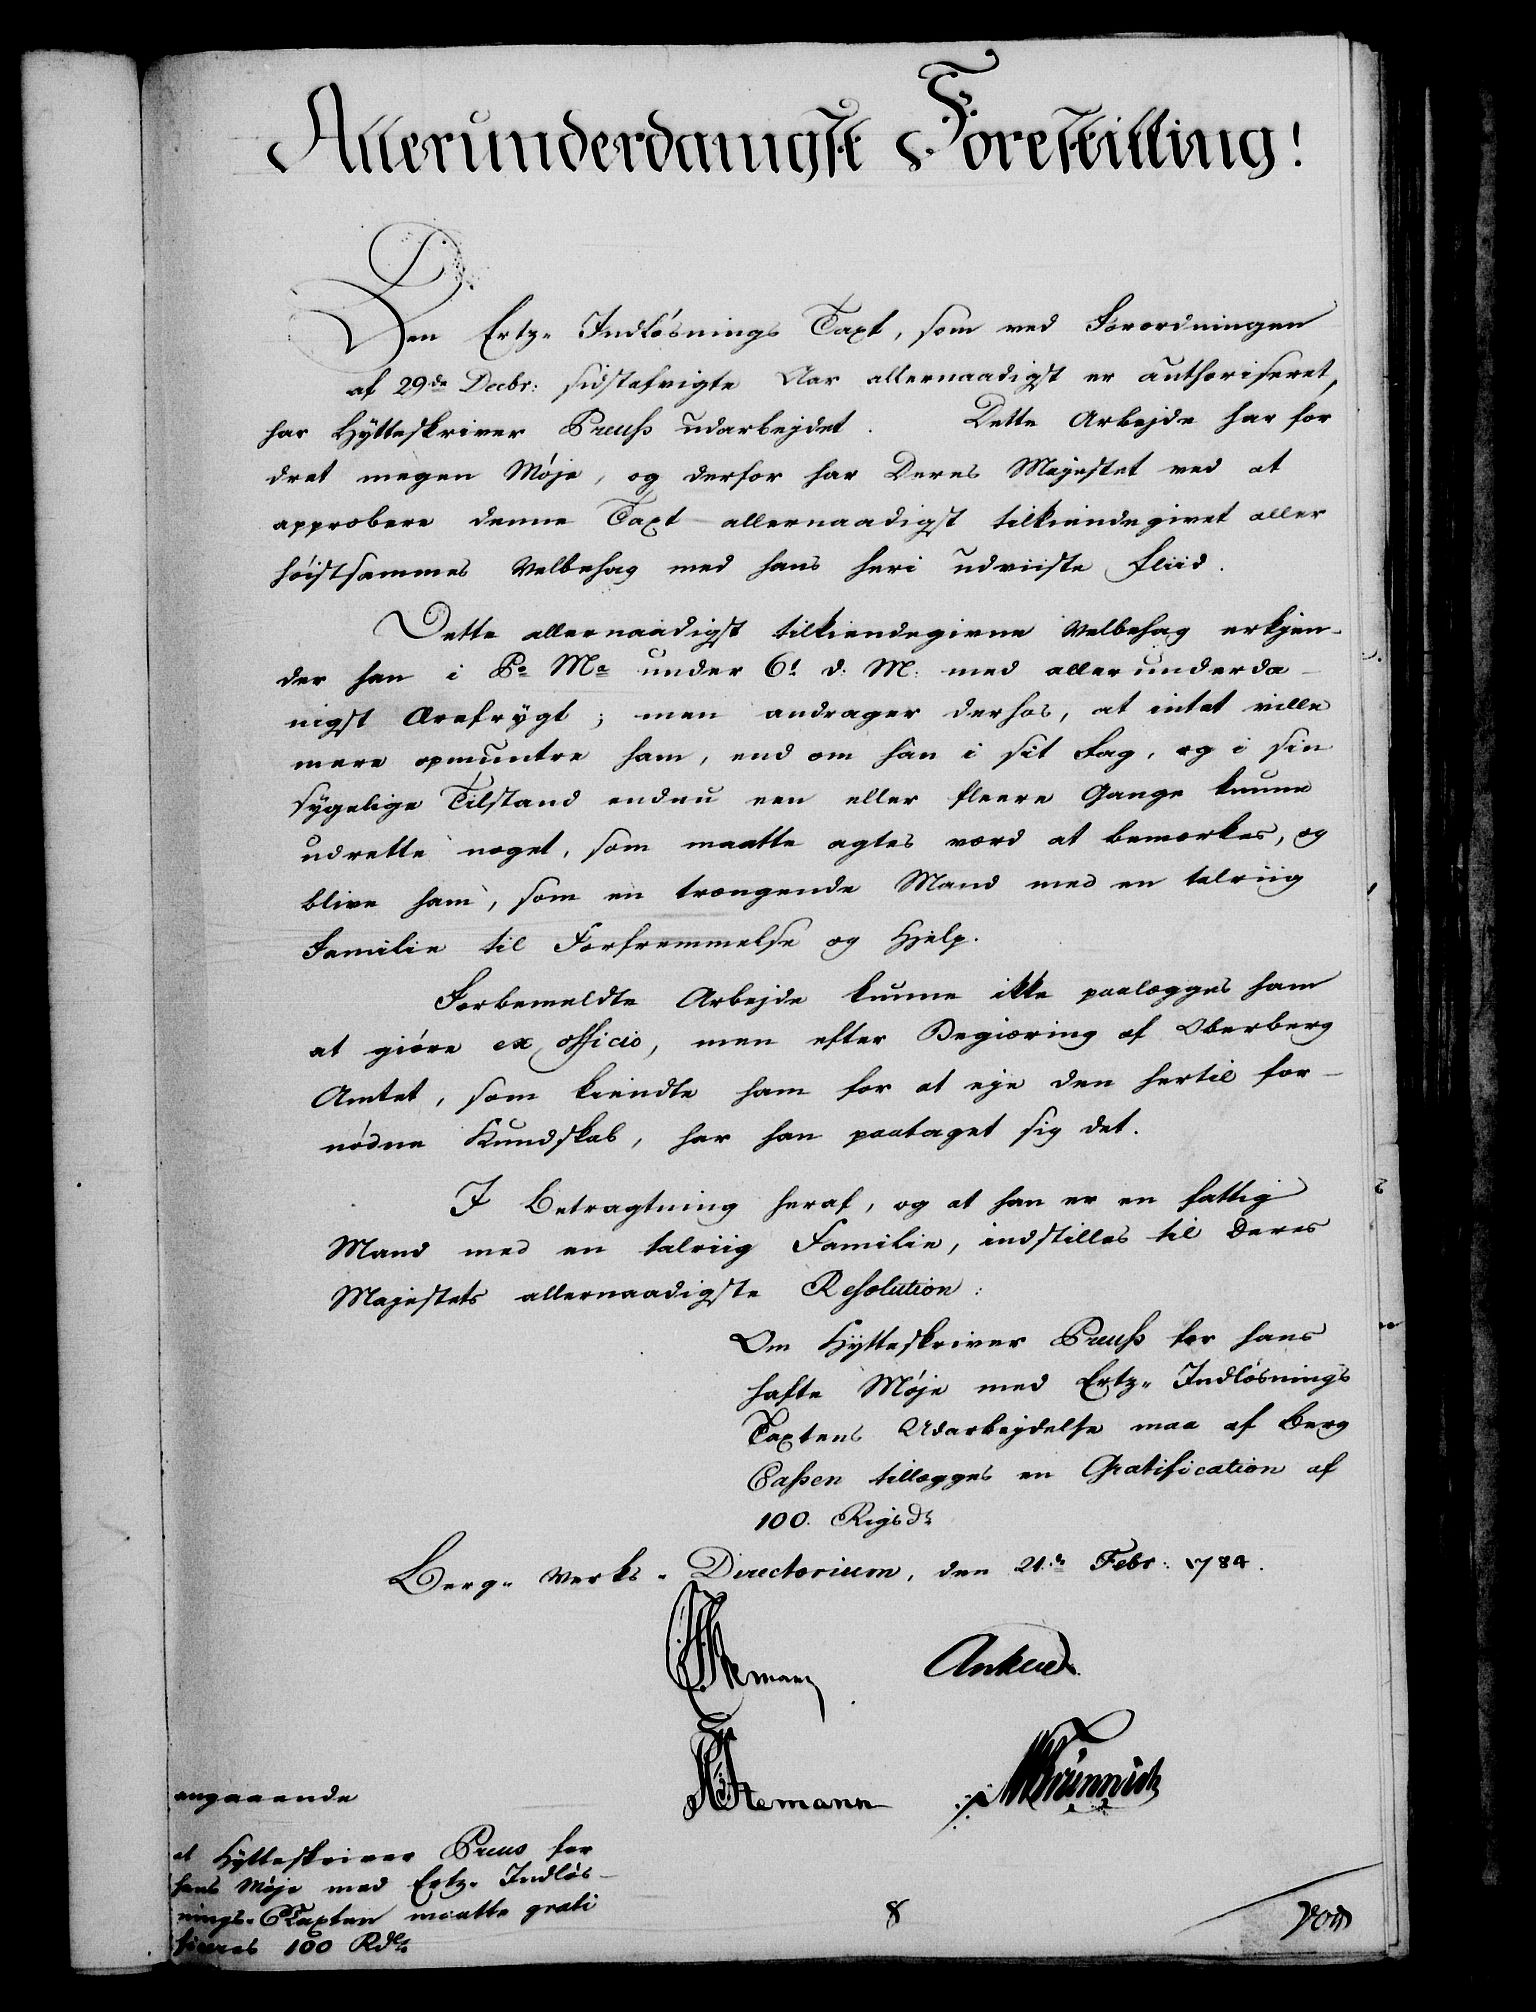 Allerunderdanigst Forestilling!
Den Ertz- Indløsnings Taxt, som ved Forordningen
af 29de Decbr: sidstafvigte Aar allernaadigst er authoriseret,
har Hytteskriver Preuß udarbejdet. Dette Arbejde har for
dret megen Møje, og derfor har Deres Majestet ved at
approbere denne Taxt allernaadigst tilkiendegivet aller
høistsammes Velbehag med hans heri udviiste Fliid.
Dette allernaadigst tilkiendegivne Velbehag erkjen-
der han i Po Ma under 6t d: M: med allerunderda-
nigst Ærefrygt; men andrager derhos, at intet ville
mere opmuntre ham, end om han i sit Fag, og i sin
sygelige Tilstand endnu een eller fleere Gange kunne
udrette noget, som maatte agtes værd at bemærkes, og
blive ham, som en trængende Mand med en talriig
Familie til Forfremmelse og Hjelp.
Forbemeldte Arbejde kunne ikke paalægges ham
at giøre ex officio, men efter Begiæring af Oberberg
Amtet, som kiendte ham for at eje den hertil for-
nødne Kundskab, har han paataget sig det.
I Betragtning heraf, og at han er en fattig
Mand med en talriig Familie, indstilles til Deres
Majestets allernaadigste Resolution:
Om Hytteskriver Preuß for hans
hafte Møje med Ertz- Indløsnings
Taxtens Udarbejdelse maa af Berg
Caßen tillægges en Gratification af
100. Rigsdr
Berg- Verks- Directorium, den 21de Febr: 1784.
Ankier
Hemann
MBrünnich
angaaende
at Hytteskriver Preus for
hans Møje med Ertz- Indløs-
nings- Taxten maatte grati
ficeres 100 Rdlr
8